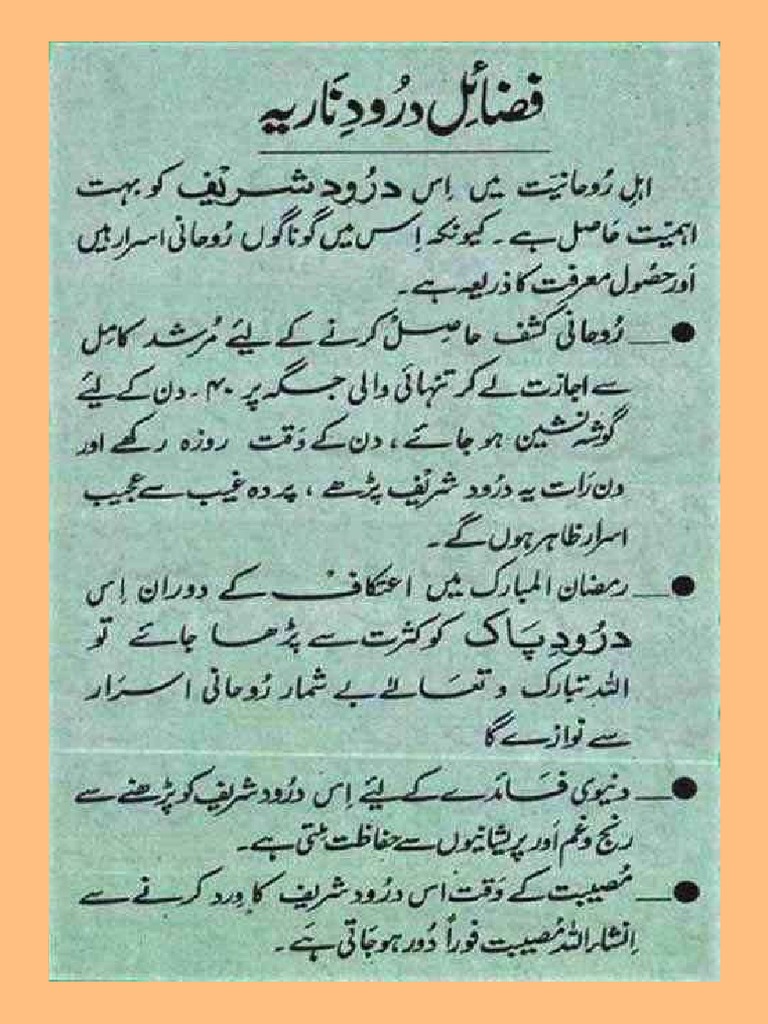 فضائلِ درُودِ نَاریہ
اہلِ رُوحانیَت میں اِس درُود شریف کو بہت
اہمیّت حَاصل ہے۔ کیونکہ اِس میں گوناگوں رُوحانی اسرار ہیں
اَور حصُول معرفت کا ذریعہ ہے۔
● __ رُوحانی کشف حاصِلْ کرنے کے لیٔے مُرشد کامِل
سے اجازت لے کر تنہائی والی جگہ پر ۴۰۔ دن کے لیٔے
گوشہ نشین ہو جائے، دن کے وَقت روزہ رکھے اور
دن رَات یہ درُود شریْف پڑھے، پردہ غیب سے عجیب
اسرار ظاہر ہوں گے۔
● __ رمضان المبارک میں اعتکاف کے دوران اِس
درُودِ پَاک کو کثرت سے پڑھا جائے تو
اللہ تبارک و تعَالےٰ بے شمار رُوحانی اسرَار
سے نوازے گا
● __ دنیوی فَائدے کے لیٔے اِس درُود شریف کو پڑھنے سے
رنج و غم اَور پریشانیوں سے حفاظت ملتی ہے۔
● __ مُصیبت کے وَقت اس درُود شریف کا وِرد کرنے سے
اِنشاء اللہ مُصیبت فوراً دُور ہو جَاتی ہَے۔